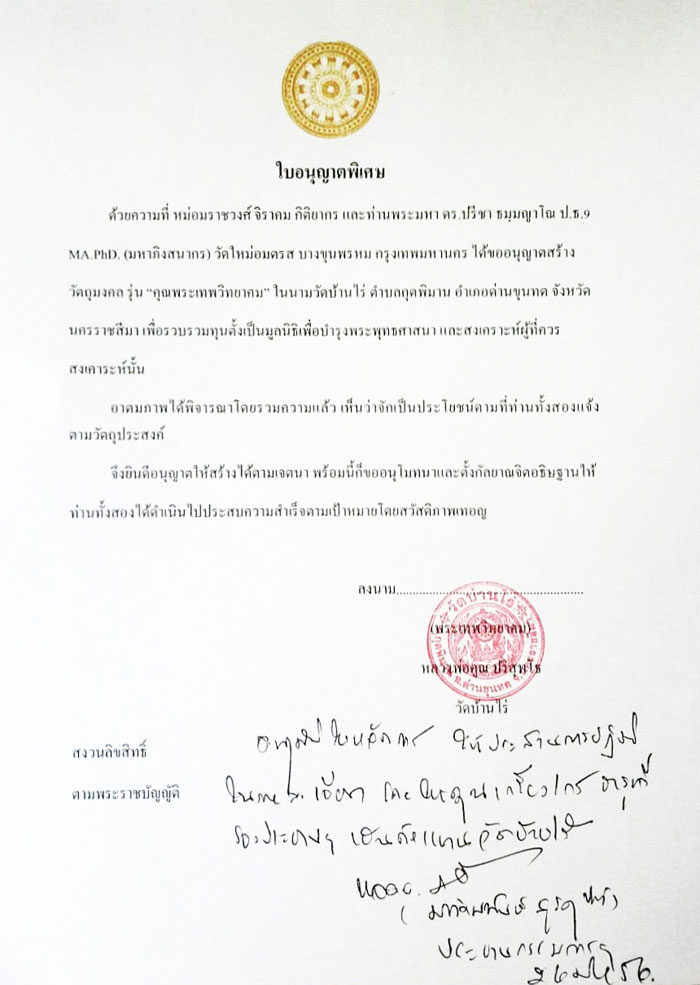 ใบอนุญาตพิเศษ
ด้วยความที่ หม่อมราชวงศ์ จิราคม กิติยากร และท่านพระมหา ดร.ปรีชา ธมฺมญาโณ ป.ธ.๙
MA.PhD. (มหากิงสนากร) วัดใหม่อมตรส บางขุนพรหม กรุงเทพมหานคร ได้ขออนุญาตสร้าง
วัตถุมงคล รุ่น “คุณพระเทพวิทยาคม” ในนามวัดบ้านไร่ ตำบลกุดพิมาน อำเภอด่านขุนทด จังหวัด
นครราชสีมา เพื่อรวบรวมทุนตั้งเป็นมูลนิธิเพื่อบำรุงพระพุทธศาสนา และสงเคราะห์ผู้ที่ควร
สงเคาระห์นั้น
อาตมภาพได้พิจารณาโดยรวมความแล้ว เห็นว่าจักเป็นประโยชน์ตามที่ท่านทั้งสองแจ้ง
ตามวัตถุประสงค์
จึงยินดีอนุญาตให้สร้างได้ตามเจตนา พร้อมนี้ก็ขออนุโมทนาและตั้งกัลยาณจิตอธิษฐานให้
ท่านทั้งสองได้ดำเนินไปประสบความสำเร็จตามเป้าหมายโดยสวัสดิภาพเทอญ
ลงนาม..........................................................
วัดบ้านไร่
(พระเทพวิทยาคม)
หลวงพ่อคูณ ปริสุทฺโธ
อ.ด่านขุนทด จ.
วัดบ้านไร่
สงวนลิขสิทธิ์
ตามพระราชบัญญัติ
อนุมัติในหลักการ ให้ประสานการปฏิบัติ
รองประธานฯ เป็นตัวแทนวัดบ้านไร่
ประธานกรรมการฯ